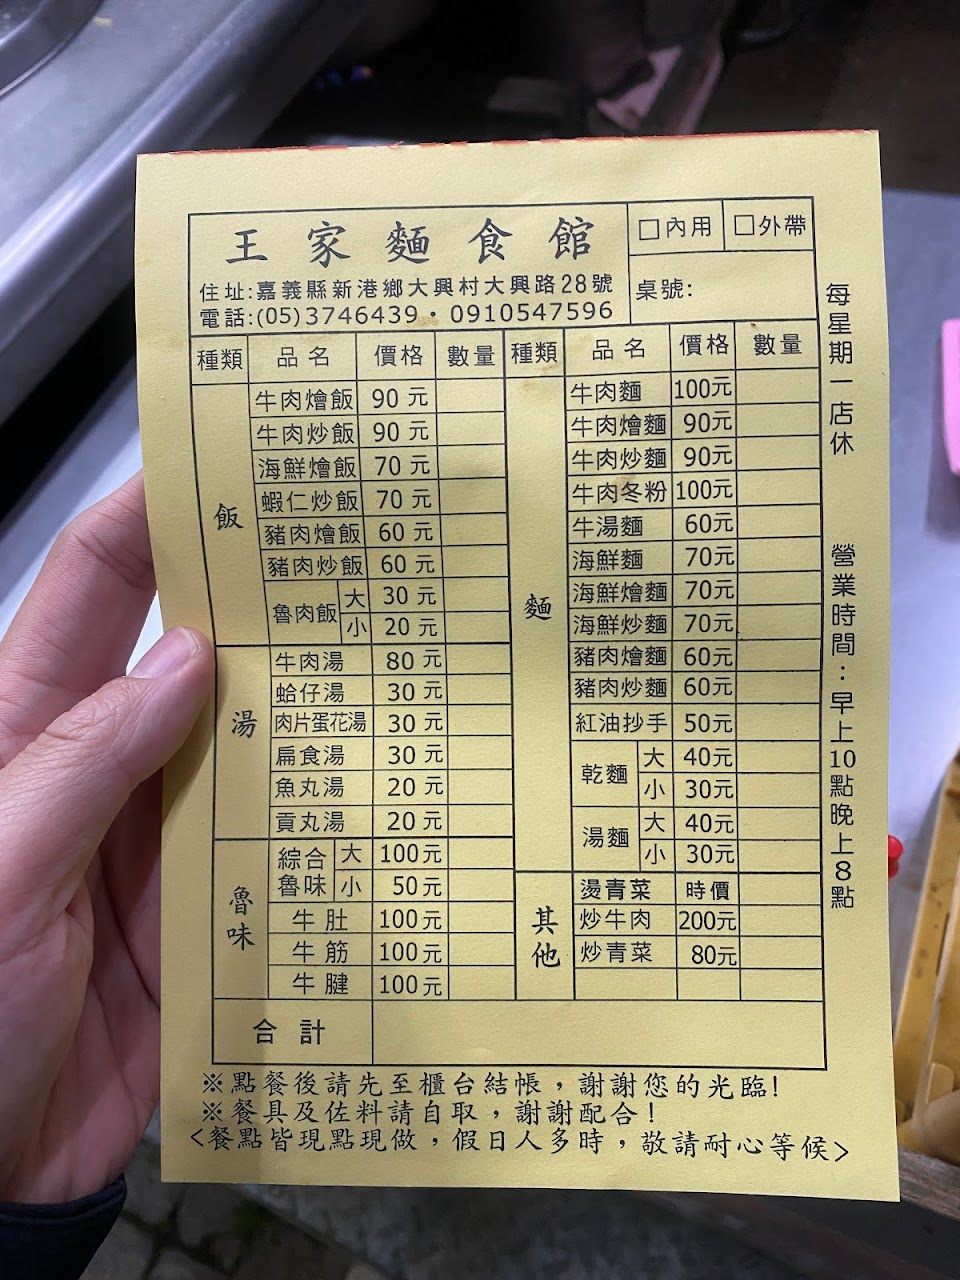 王家麵食館
□內用 □外帶
住址:嘉義縣新港鄉大興村大興路28號
電話:(05)3746439・0910547596
桌號:
種類 品名 價格 數量
飯
牛肉燴飯 90元
牛肉炒飯 90元
海鮮燴飯 70元
蝦仁炒飯 70元
豬肉燴飯 60元
豬肉炒飯 60元
魯肉飯 大 30元
小 20元
湯
牛肉湯 80元
蛤仔湯 30元
肉片蛋花湯 30元
扁食湯 30元
魚丸湯 20元
貢丸湯 20元
魯味
綜合魯味 大 100元
小 50元
牛肚 100元
牛筋 100元
牛腱 100元
種類 品名 價格 數量
麵
牛肉麵 100元
牛肉燴麵 90元
牛肉炒麵 90元
牛肉冬粉 100元
牛湯麵 60元
海鮮麵 70元
海鮮燴麵 70元
海鮮炒麵 70元
豬肉燴麵 60元
豬肉炒麵 60元
紅油抄手 50元
乾麵 大 40元
小 30元
湯麵 大 40元
小 30元
其他
燙青菜 時價
炒牛肉 200元
炒青菜 80元
合計
※點餐後請先至櫃台結帳，謝謝您的光臨!
※餐具及佐料請自取，謝謝配合!
<餐點皆現點現做，假日人多時，敬請耐心等候>
每星期一店休
營業時間：早上10點晚上8點